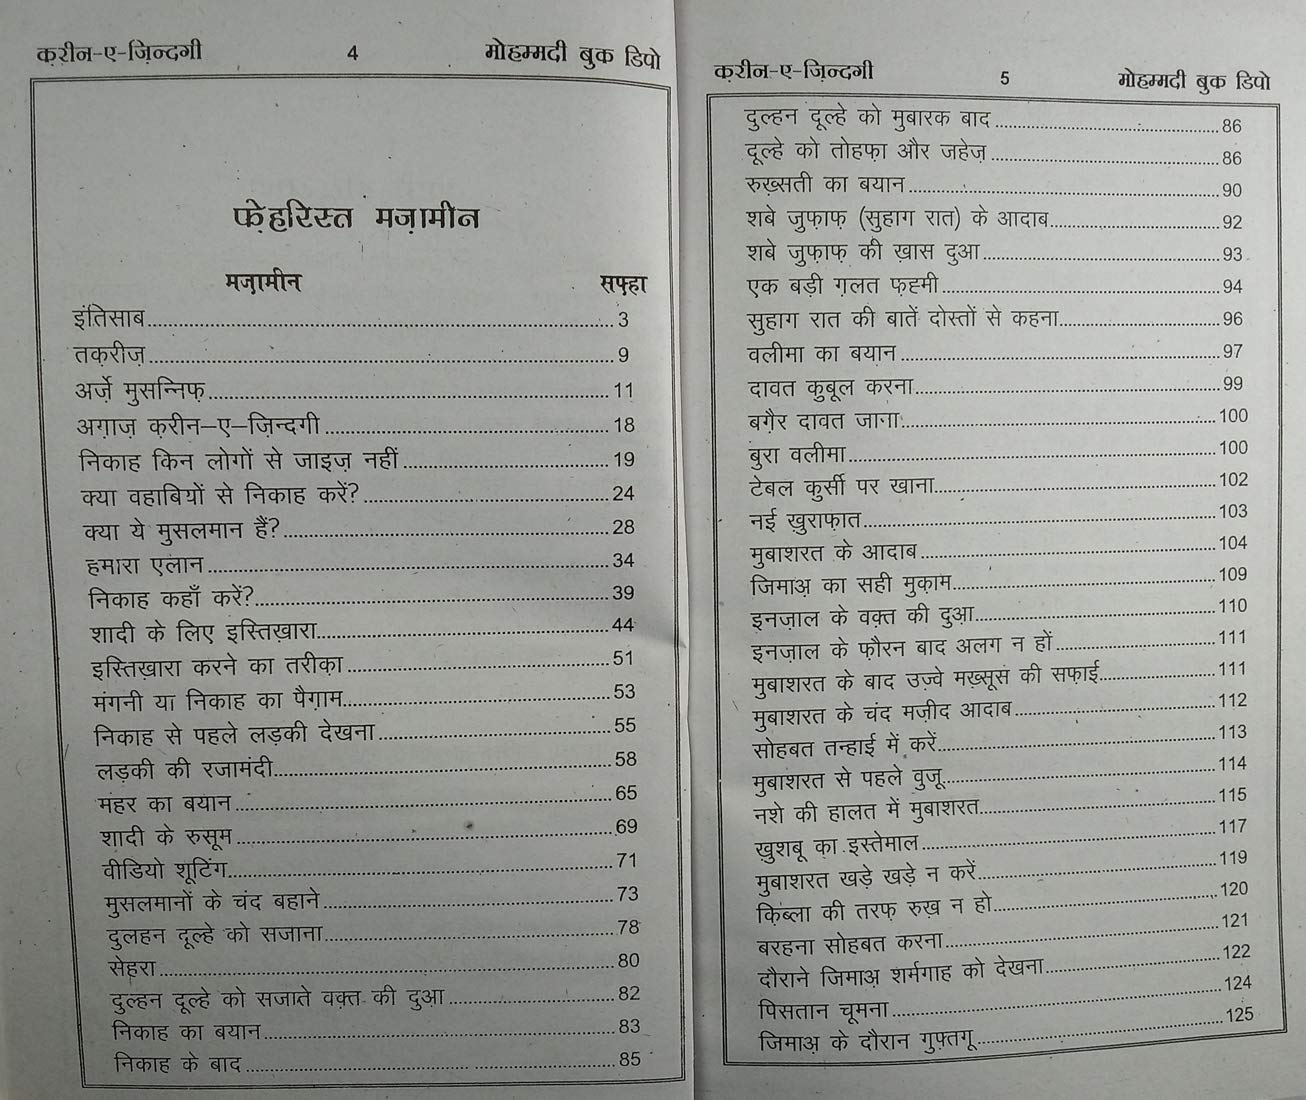 क़रीन-ए-ज़िन्दगी 4 मोहम्मदी बुक डिपो
फ़ेहरिस्त मज़ामीन
मज़ामीन सफ्हा
इंतिसाब 3
तक़रीज़ 9
अर्ज़े मुसन्निफ़ 11
अग़ाज़ क़रीन–ए–ज़िन्दगी 18
निकाह किन लोगों से जाइज़ नहीं 19
क्या वहाबियों से निकाह करें? 24
क्या ये मुसलमान हैं? 28
हमारा एलान 34
निकाह कहाँ करें? 39
शादी के लिए इस्तिख़ारा 44
इस्तिख़ारा करने का तरीक़ा 51
मंगनी या निकाह का पैग़ाम 53
निकाह से पहले लड़की देखना 55
लड़की की रजामंदी 58
महर का बयान 65
शादी के रुसूम 69
वीडियो शूटिंग 71
मुसलमानों के चंद बहाने 73
दुलहन दूल्हे को सजाना 78
सेहरा 80
दुल्हन दूल्हे को सजाते वक़्त की दुआ़ 82
निकाह का बयान 83
निकाह के बाद 85
क़रीन-ए-ज़िन्दगी 5 मोहम्मदी बुक डिपो
दुल्हन दूल्हे को मुबारक बाद 86
दूल्हे को तोहफ़ा और जहेज़ 86
रुख़्सती का बयान 90
शबे जुफ़ाफ़ (सुहाग रात) के आदाब 92
शबे जुफ़ाफ़ की ख़ास दुआ 93
एक बड़ी ग़लत फ़ह्मी 94
सुहाग रात की बातें दोस्तों से कहना 96
वलीमा का बयान 97
दावत कुबूल करना 99
बग़ैर दावत जाना 100
बुरा वलीमा 100
टेबल कुर्सी पर खाना 102
नई ख़ुराफ़ात 103
मुबाशरत के आदाब 104
जिमाअ़ का सही मुक़ाम 109
इनज़ाल के वक़्त की दुआ़ 110
इनज़ाल के फ़ौरन बाद अलग न हों 111
मुबाशरत के बाद उज़्वे मख़्सूस की सफ़ाई 111
मुबाशरत के चंद मज़ीद आदाब 112
सोहबत तन्हाई में करें 113
मुबाशरत से पहले वुजू 114
नशे की हालत में मुबाशरत 115
ख़ुशबू का इस्तेमाल 117
मुबाशरत खड़े खड़े न करें 119
क़िब्ला की तरफ़ रुख़ न हो 120
बरहना सोहबत करना 121
दौराने जिमाअ़ शर्मगाह को देखना 122
पिसतान चूमना 124
जिमाअ़ के दौरान गुफ़्तगू 125